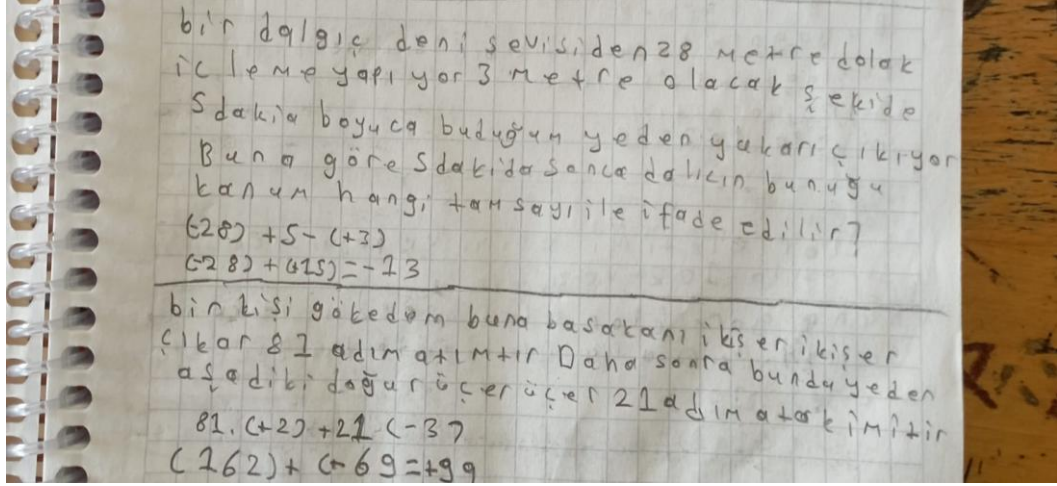 bir dalgıç deni sevisiden 28 metre dalak
icleme yapıyor 3 metre olacak şekide
5 dakia boyuca buduğum yeden yukarı çıkıyor
Buna göre 5 dakida sonca dalıcın bunuğu
kanum hangi tam sayı ile ifade edilir?
(-28) +5-(+3)
(-28)+(+15)=-13
bir kişi gökedom buna basakanı ikişer ikişer
çıkar 81 adım atımtır Daha sonra bunduyeden
aşadiki doğur üçer üçer 21 adım atarkimitir
81.(+2)+21(-3)
(162)+(-69=+99